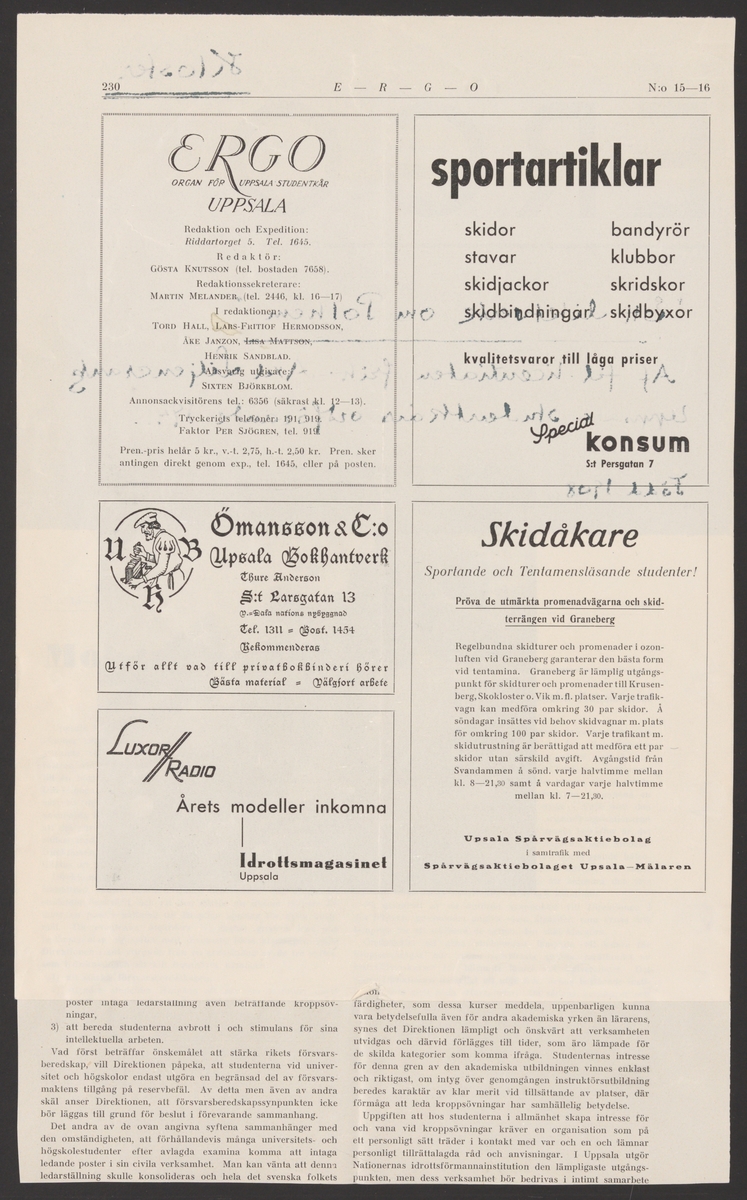 230
E — R — G — O
N:o 15—16
ERGO
ORGAN FÖR UPPSALA STUDENTKÅR
UPPSALA
Redaktion och Expedition:
Riddartorget 5. Tel. 1645.
Redaktör:
GÖSTA KNUTSSON (tel. bostaden 7658).
Redaktionssekreterare:
MARTIN MELANDER, (tel. 2446, kl. 16—17)
I redaktionen:
TORD HALL, LARS-FRITIOF HERMODSSON,
ÅKE JANZON, LISA MATTSON,
HENRIK SANDBLAD.
Ansvarig utgivare:
SIXTEN BJÖRKBLOM.
Annonsackvisitörens tel.: 6356 (säkrast kl. 12—13).
Tryckeriets telefoner: 191, 919.
Faktor PER SJÖGREN, tel. 919.
Pren.-pris helår 5 kr., v.-t. 2,75, h.-t. 2.50 kr. Pren. sker
antingen direkt genom exp., tel. 1645, eller på posten.
sportartiklar
skidor bandyrör
stavar klubbor
skidjackor skridskor
skidbindningar skidbyxor
kvalitetsvaror till låga priser
Special
konsum
S:t Persgatan 7
U B H
Ömansson & C:o
Upsala Bokhantverk
Thure Anderson
S:t Larsgatan 13
V.=Dala nations nybyggnad
Tel. 1311 = Bost. 1454
Rekommenderas
Utför allt vad till privatbokbinderi hörer
Bästa material = Välgjort arbete
LUXOR RADIO
Årets modeller inkomna
Idrottsmagasinet
Uppsala
Skidåkare
Sportande och Tentamensläsande studenter!
Pröva de utmärkta promenadvägarna och skid-
terrängen vid Graneberg
Regelbundna skidturer och promenader i ozon-
luften vid Graneberg garanterar den bästa form
vid tentamina. Graneberg är lämplig utgångs-
punkt för skidturer och promenader till Krusen-
berg, Skokloster o. Vik m. fl. platser. Varje trafik-
vagn kan medföra omkring 30 par skidor. Å
söndagar insättes vid behov skidvagnar m. plats
för omkring 100 par skidor. Varje trafikant m.
skidutrustning är berättigad att medföra ett par
skidor utan särskild avgift. Avgångstid från
Svandammen å sönd. varje halvtimme mellan
kl. 8—21,30 samt å vardagar varje halvtimme
mellan kl. 7—21,30.
Upsala Spårvägsaktiebolag
i samtrafik med
Spårvägsaktiebolaget Upsala—Mälaren
poster intaga ledarställning även beträffande kroppsöv-
ningar,
3) att bereda studenterna avbrott i och stimulans för sina
intellektuella arbeten.
Vad först beträffar önskemålet att stärka rikets försvars-
beredskap, vill Direktionen påpeka, att studenterna vid univer-
sitet och högskolor endast utgöra en begränsad del av försvars-
maktens tillgång på reservbefäl. Av detta men även av andra
skäl anser Direktionen, att försvarsberedskapssynpunkten icke
bör läggas till grund för beslut i förevarande sammanhang.
Det andra av de ovan angivna syftena sammanhänger med
den omständigheten, att förhållandevis många universitets- och
högskolestudenter efter avlagda examina komma att intaga
ledande poster i sin civila verksamhet. Man kan vänta att denna
ledarställning skulle konsolideras och hela det svenska folkets
färdigheter, som dessa kurser meddela, uppenbarligen kunna
vara betydelsefulla även för andra akademiska yrken än lärarens,
synes det Direktionen lämpligt och önskvärt att verksamheten
utvidgas och därvid förlägges till tider, som äro lämpade för
de skilda kategorier som komma ifråga. Studenternas intresse
för denna gren av den akademiska utbildningen vinnes enklast
och riktigast, om intyg över genomgången instruktörsutbildning
beredes karaktär av klar merit vid tillsättande av platser, där
förmåga att leda kroppsövningar har samhällelig betydelse.
Uppgiften att hos studenterna i allmänhet skapa intresse för
och vana vid kroppsövningar kräver en organisation som på
ett personligt sätt träder i kontakt med var och en och lämnar
personligt tillrättalagda råd och anvisningar. I Uppsala utgör
Nationernas idrottsförmannainstitution den lämpligaste utgångs-
punkten, men dess verksamhet bör bedrivas i intimt samarbete